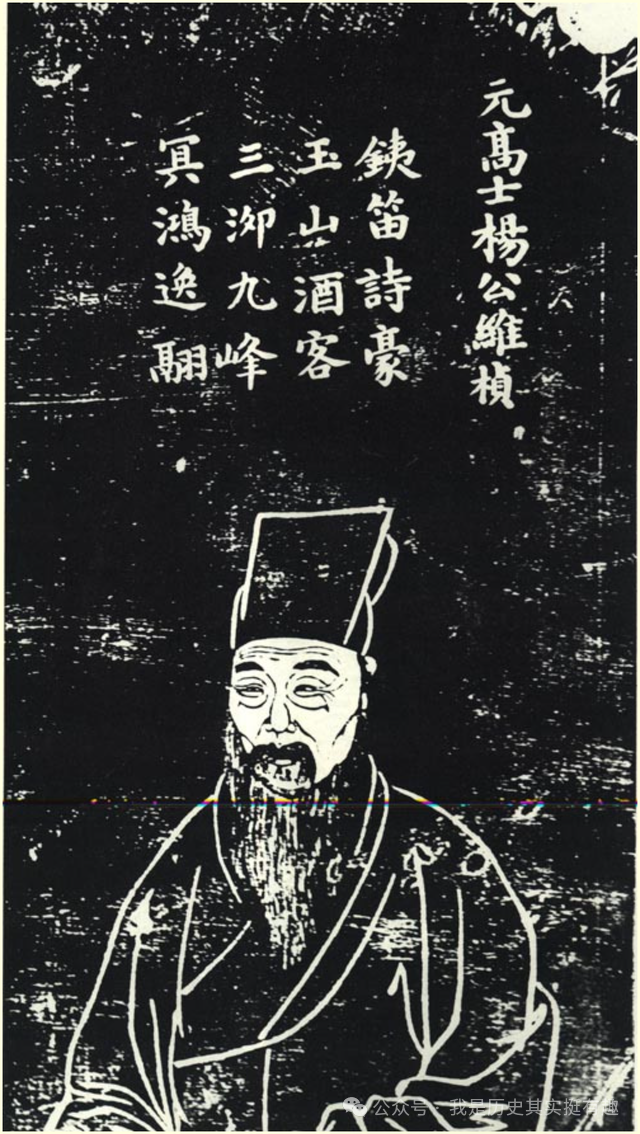 元高士楊公維楨
銕笛詩豪
玉山酒客
三泖九峰
冥鴻逸翮
公众号 · 我是历史其实挺有趣